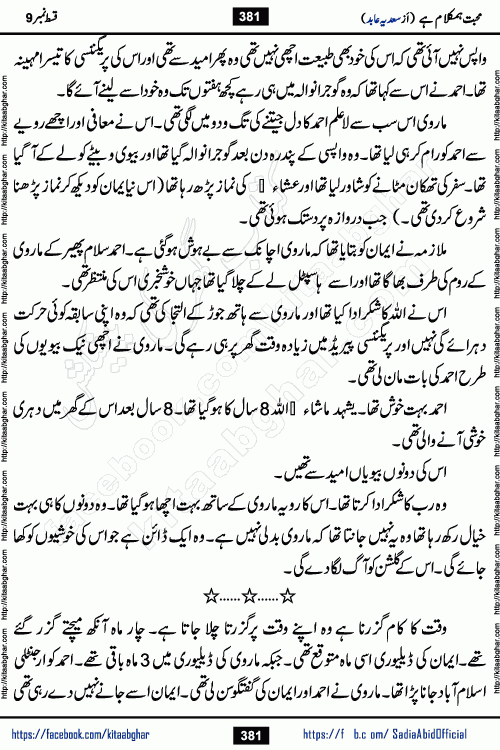 محبت ہمکلام ہے (از سعدیہ عابد)
381
قسط نمبر 9
واپس نہیں آئی تھی کہ اس کی خود بھی طبیعت اچھی نہیں تھی وہ پھر امید سے تھی اور اس کی پریگننسی کا تیسرا مہینہ
تھا۔ احمد نے اس سے کہا تھا کہ وہ گوجرانوالہ میں ہی رہے کچھ ہفتوں تک وہ خود اسے لینے آئے گا۔
ماروی اس سب سے لاعلم احمد کا دل جیتنے کی تگ و دو میں لگی تھی۔ اس نے معافی اور اچھے رویے
سے احمد کو رام کر ہی لیا تھا۔ وہ واپسی کے پندرہ دن بعد گوجرانوالہ گیا تھا اور بیوی و بیٹے کو لے کے آ گیا
تھا۔ سفر کی تھکان مٹانے کو شاور لیا تھا اور عشاء کی نماز پڑھ رہا تھا (اس نیا ایمان کو دیکھ کر نماز پڑھنا
شروع کر دی تھی۔) جب دروازہ پر دستک ہوئی تھی۔
ملازمہ نے ایمان کو بتایا تھا کہ ماروی اچانک سے بے ہوش ہو گئی ہے۔ احمد سلام پھیر کے ماروی
کے روم کی طرف بھاگا تھا اور اسے ہاسپٹل لے کے چلا گیا تھا جہاں خوشخبری اس کی منتظر تھی۔
اس نے اللہ کا شکر ادا کیا تھا اور ماروی سے ہاتھ جوڑ کے التجا کی تھی کہ وہ اپنی سابقہ کوئی حرکت
دہرائے گی نہیں اور پریگننسی پیریڈ میں زیادہ وقت گھر پر ہی رہے گی۔ ماروی نے اچھی نیک بیویوں کی
طرح احمد کی بات مان لی تھی۔
احمد بہت خوش تھا۔ یشہد ماشاء اللہ 8 سال کا ہو گیا تھا۔ 8 سال بعد اس کے گھر میں دہری
خوشی آنے والی تھی۔
اس کی دونوں بیویاں امید سے تھیں۔
وہ رب کا شکر ادا کرتا تھا۔ اس کا رویہ ماروی کے ساتھ بہت اچھا ہو گیا تھا۔ وہ دونوں کا ہی بہت
خیال رکھ رہا تھا وہ یہ نہیں جانتا تھا کہ ماروی بدلی نہیں ہے۔ وہ ایک ڈائن ہے جو اس کی خوشیوں کو کھا
جائے گی۔ اس کے گلشن کو آگ لگا دے گی۔
☆......☆......☆
وقت کا کام گزرنا ہے وہ اپنے وقت پر گزرتا چلا جاتا ہے۔ چار ماہ آنکھ میچتے گزر گئے
تھے۔ ایمان کی ڈیلیوری اسی ماہ متوقع تھی۔ جبکہ ماروی کی ڈیلیوری میں 3 ماہ باقی تھے۔ احمد کو ارجنٹلی
اسلام آباد جانا پڑا تھا۔ ماروی نے احمد اور ایمان کی گفتگو سن لی تھی۔ ایمان اسے جانے نہیں دے رہی تھی
https://facebook.com/kitaabghar
381
https://f b.c om/ SadiaAbidOfficial
http://kitaabghar.com